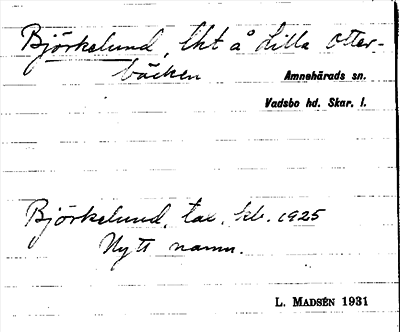 Björkelund, lht å Lilla Otter-
bäcken
Amnehärads sn.
Vadsbo hd. Skar. l.
Björkelund, tax. lib. 1925
Nytt namn.
L. MADSÉN 1931